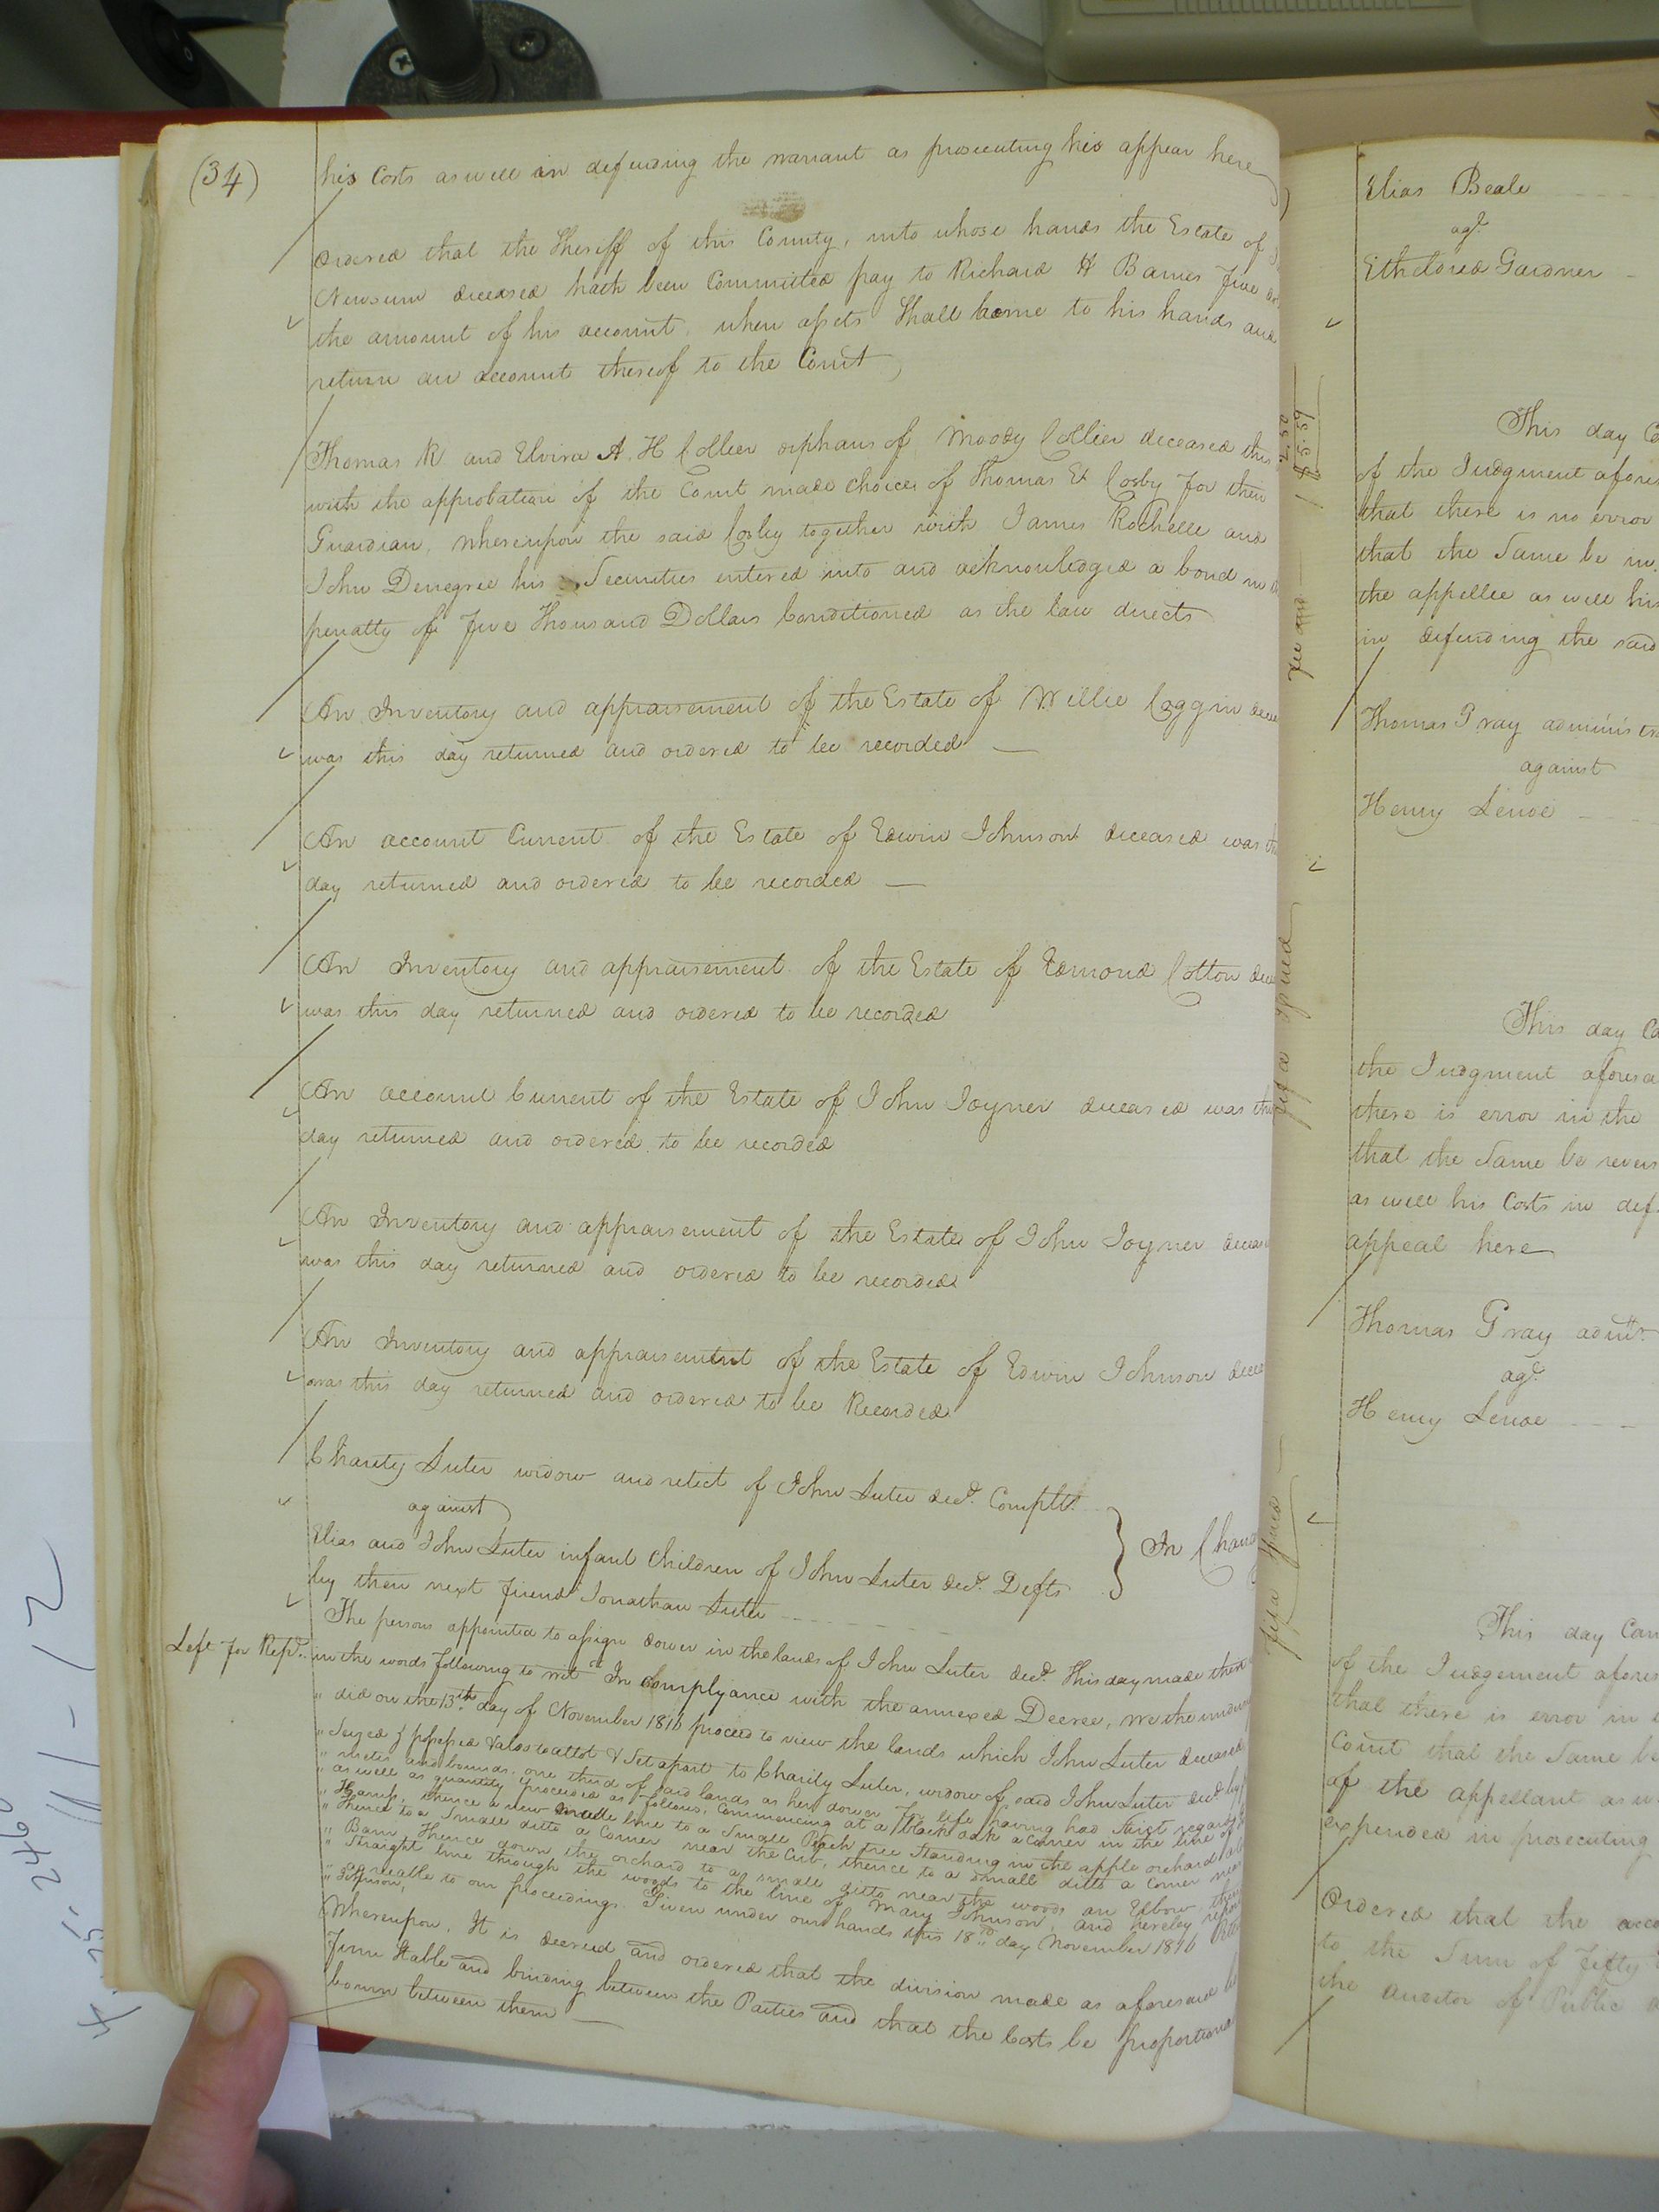 (34)
his Costs as well in defending the warrant as prosecuting his appear here
Ordered that the Sheriff of this County, into whose hands the Estate of
Newsum deceased hath been Committed pay to Richard H Barnes Five
the amount of his account, when assets Shall come to his hands and
return an account thereof to the Court
Thomas R and Elvira A. H Collier orphans of Moody Collier deceased this
with the approbation of the Court made choice of Thomas E Cosby for their
Guardian, whereupon the said Cosby together with James Rochelle and
John Denegree his Securities entered into and acknowledged a bond in
penalty of Five Thousand Dollars Conditioned as the law directs
An Inventory and appraisement of the Estate of Willie Coggin
was this day returned and ordered to be recorded —
An account Current of the Estate of Edwin Johnson deceased was
day returned and ordered to be recorded —
An Inventory and appraisement of the Estate of Edmond Cotton
was this day returned and ordered to be recorded
An account Current of the Estate of John Joyner deceased was
day returned and ordered to be recorded
An Inventory and appraisement of the Estate of John Joyner
was this day returned and ordered to be recorded
An Inventory and appraisement of the Estate of Edwin Johnson
was this day returned and ordered to be Recorded
Charity Luter widow and relict of John Luter decd. Complt.
against
Elias and John Luter infant Children of John Luter decd. Defts
by their next friend Jonathan Luter
In
The persons appointed to assign dower in the lands of John Luter decd. This day made their
Left for Repd. in the words following to wit " In Complyance with the annexed Decree, We the
" did on the 13th day of November 1816 proceed to view the lands which John Luter deceased
" Seized & possessed & also to allot & Set apart to Charity Luter, widow of said John Luter decd. by
" metes and bounds, one third of said lands as her dower for life having had Strict regard
" as well as quantity proceeded as follows, Commencing at a black oak a Corner in the line of
" thence a new line to a Small Peach tree Standing in the apple orchard
" thence to a Small ditto a Corner near the Crib, thence to a small ditto a Corner near
" Barn, thence down the orchard to a small ditto near the woods an Elbow, thence
" Straight line through the woods to the line of Mary Johnson, and hereby
" to our proceedings. Given under our hands this 18th day November 1816
" Johnson,
Whereupon, It is decreed and ordered that the division made as aforesaid be
firm Stable and binding between the Parties and that the Costs be
bourn between them —
2.50
$5.59
Elias Beale
agt.
Etheldred Gardner
This day
of the Judgment
that there is no error
that the Same be
the appellee as well his
in defending the said
Thomas Gray
against
Henry Lenoe
This day
the Judgment
there is error in the
that the Same be
as well his Costs in
appeal here
Thomas Gray admr.
agt.
Henry Lenoe
This day
of the Judgement
that there is error in
Court that the Same be
of the appellant as
expended in prosecuting
Ordered that the
to the Sum of Fifty
the Auditor of Public